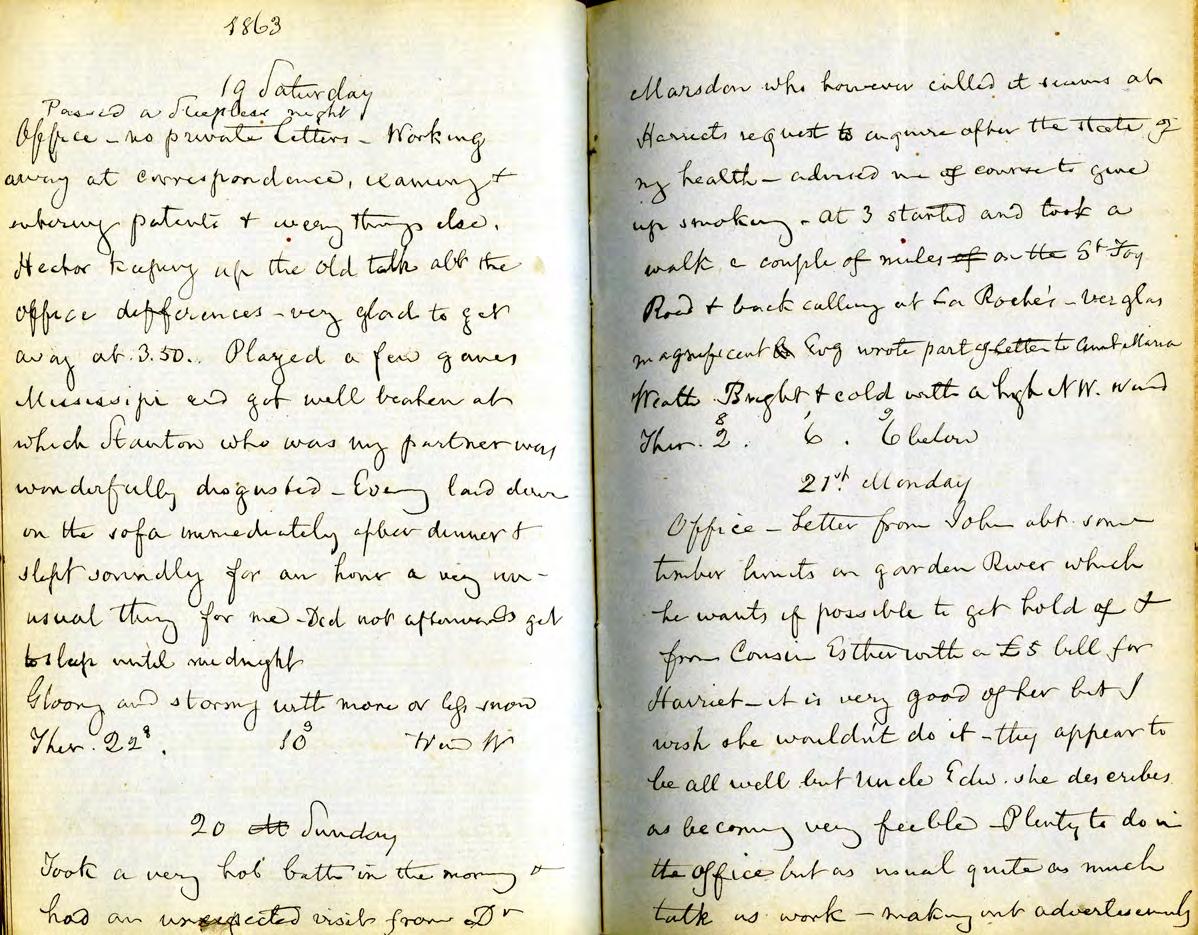 1863
19 Saturday
Passed a Sleepless night
Office – no private letters – Working
away at correspondence, examing &
entering patents & every thing else.
Hector keeping up the old talk abt the
office differences – very glad to get
away at 3.50.. Played a few games
Mississipi and got well beaten at
which Stanton who was my partner was
wonderfully disgusted – Eveng laid down
on the sofa immediately after dinner &
slept soundly for an hour a very un-
usual thing for me – Did not afterwards get
to sleep until midnight
Gloomy and stormy with more or less snow
Ther. 22⁸. 10⁹ Wind W
20 Sunday
Took a very hot bath in the morning &
had an unexpected visit from Dr
Marsden who however called it seems at
Harriets request to enquire after the state of
my health – advised me of course to give
up smoking – at 3 started and took a
walk a couple of miles of on the St Foy
Road & back calling at La Roche's – verglas
magnificent Evg wrote part of letter to Aunt Maria
Weath Bright & cold with a high N.W. wind
Ther. 2⁸. 6. 6⁹ below
21st. Monday
Office – Letter from John abt some
timber limits on garden River which
he wants if possible to get hold of &
from Cousin Esther with a £5 bill for
Harriet – it is very good of her but I
wish she wouldn't do it – they appear to
be all well but Uncle Edw. she describes
as becoming very feeble – Plenty to do in
the office but as usual quite as much
talk as work – making out advertisements